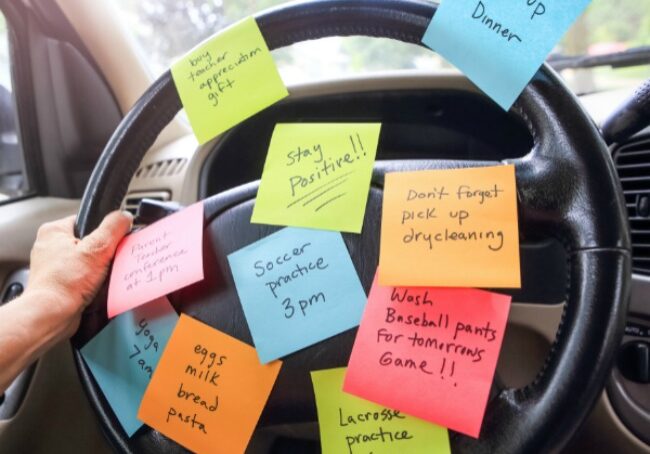 up
Dinner
buy
teacher
appreciation
gift
Stay
Positive!!
Don't forget
pick up
drycleaning
Parent
Teacher
conference
at 1pm
Soccer
practice
3pm
Wash
Baseball pants
For tomorrows
Game!!
yoga
7am
eggs
milk
bread
pasta
Lacrosse
practice